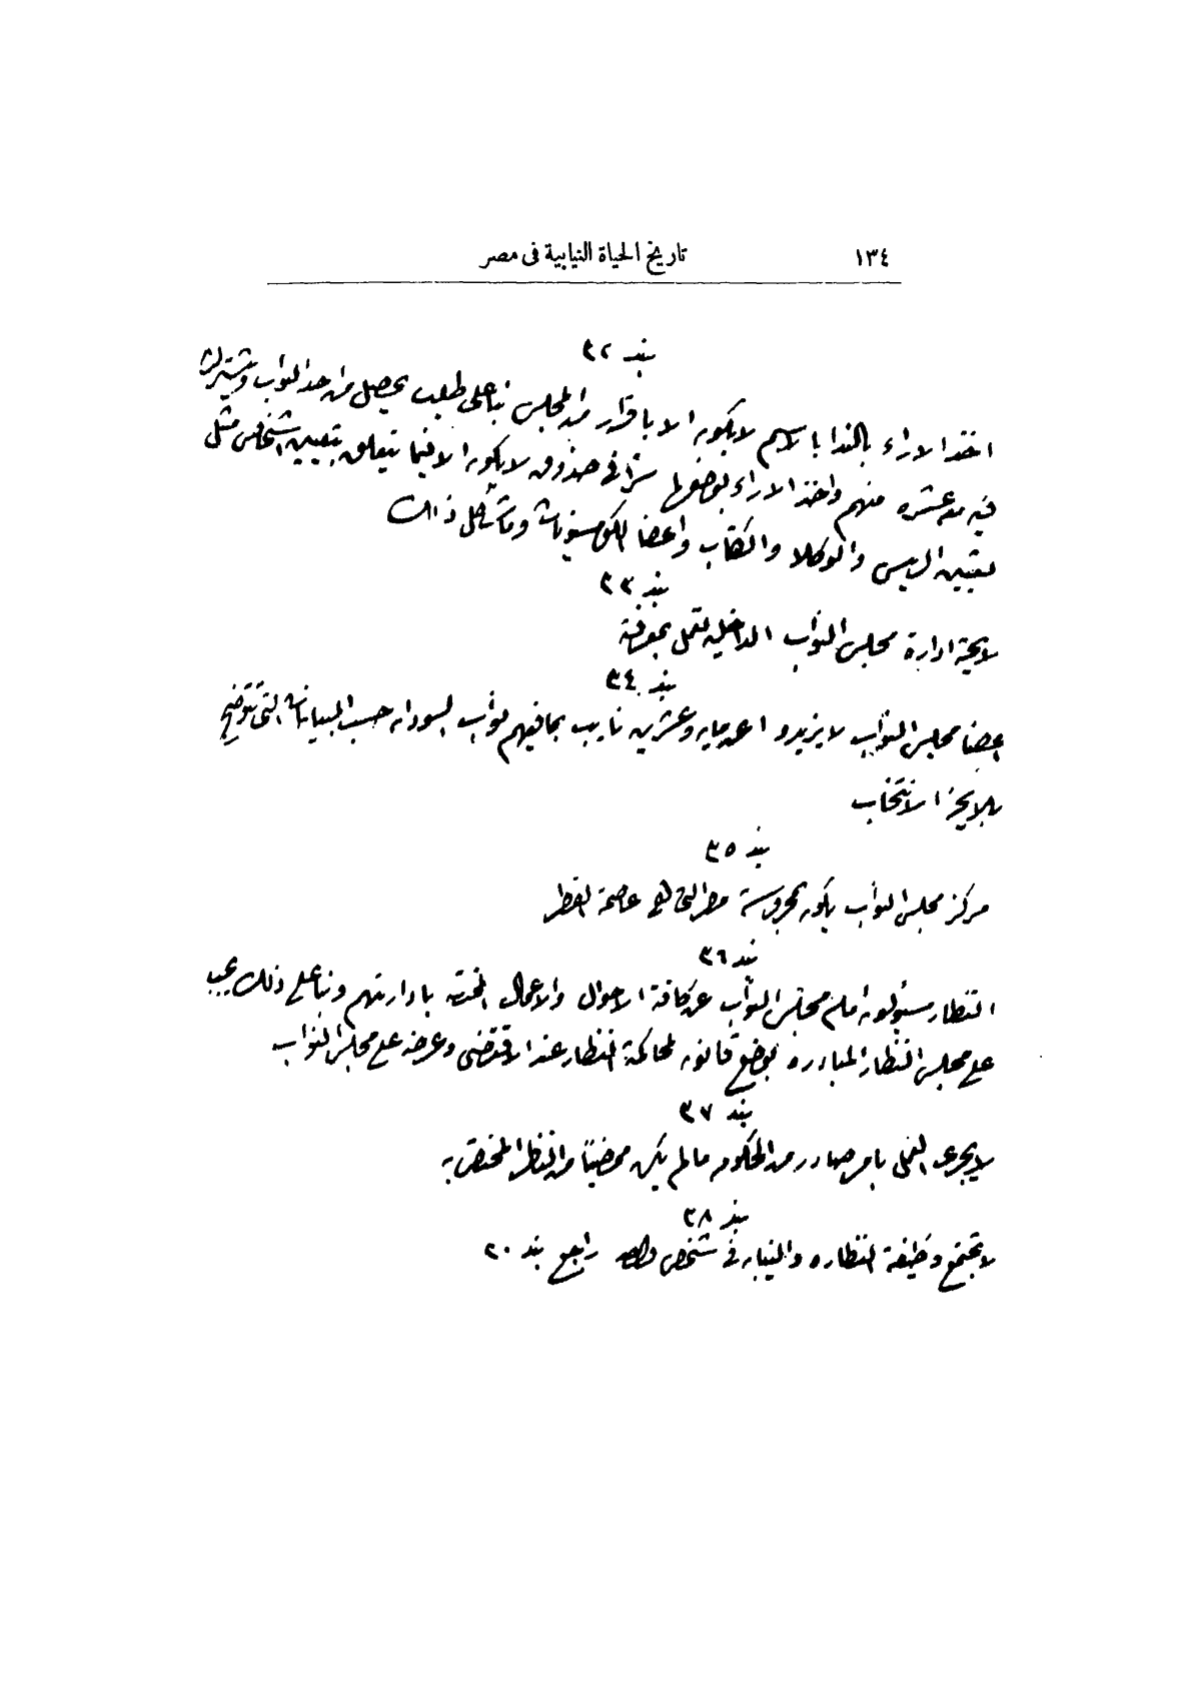 ١٣٤ تاريخ الحياة النيابية فى مصر
بند ٣٢
اخذ الاراء بالندا بالاسم لا يكون الا باقرار من المجلس بنا على طلب يحصل من احد النواب ويشترك
فيه معه عشره منهم واخذ الاراء بوضعها سرّا فى صندوق لا يكون الا فيما يتعلق بتعيين اشخاص مثل
تعيين الريس والوكلا والكتاب واعضا القومسيونات وما شاكل ذالك
بند ٣٣
لايحة ادارة مجلس النواب الداخليه تعمل بمعرفته
بند ٣٤
اعضا مجلس النواب لا يزيدو عن مايه وعشرين نايب بما فيهم نواب السودان حسب البيانات التى تتوضح
بلايحة الانتخاب
بند ٣٥
مركز مجلس النواب يكون بمحروسة مصر التى هى عاصمة القطر
بند ٣٦
النظار مسئولون امام مجلس النواب عن كافة الاحوال والاعمال المختصه بادارتهم وبنا على ذلك يجب
على مجلس النظار المبادره بوضع قانون لمحاكمة النظار عند الاقتضى وعرضه على مجلس النواب
بند ٣٧
لا يجرى العمل بامر صادر من الحكومه مالم يكن ممضيّاً من الناظر المختص به
بند ٣٨
لا تجتمع وظيفة النظاره والنيابه فى شخص واحد راجع بند ٢٠